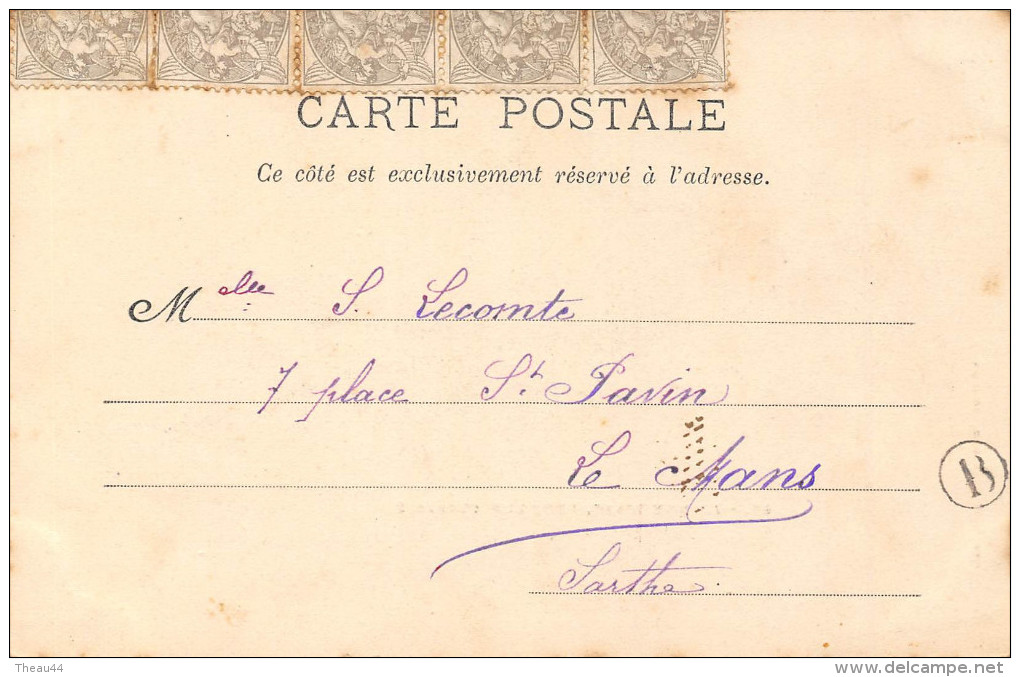 CARTE POSTALE
Ce côté est exclusivement réservé à l'adresse.
Mlle S. Lecomte
7 place St Pavin
Le Mans
Sarthe
B
Theau44
www.delcampe.net